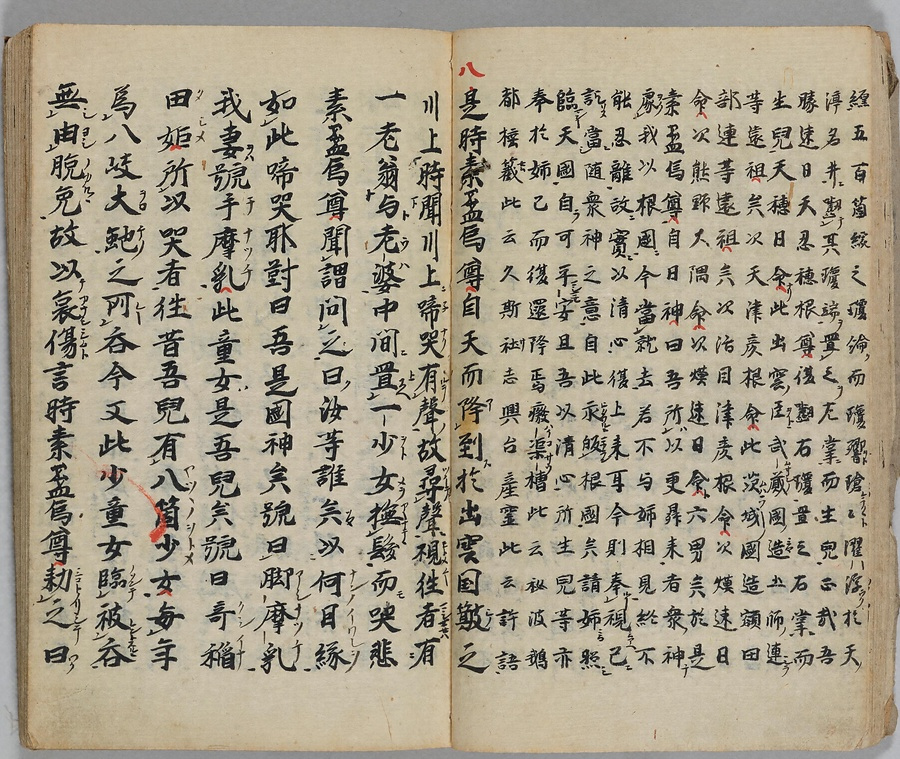 纏五百箇統之瓊綸而瓊響瑲々濯浮於天
渟名井對其瓊端置之左掌而生兒正哉吾
勝速日天忍穗根尊復對右瓊置之右掌而
生兒天穗日命此出雲臣武藏國造土師連
等遠祖矣次天津彥根命此茨城國造額田
部連等遠祖矣次活目津彥根命次熯速日
命次熊野大隅命次熯速日命六男矣於是
素盞嗚尊白日神曰吾所以更昇來者衆神
處我以根國今當就去若不与姉相見終不
能忍離故實以清心復上來耳今則奉覲已
訖當随衆神之意自此永皈根國矣請姉照
臨天國自可平安且吾以清心所生兒等亦
奉於姉已而復還降焉癈渠槽此云秘波鵝
都捶籤此云久斯社志興台産霊此云許語
八
是時素盞嗚尊自天而降到於出雲国簸之
川上時聞川上啼哭有聲故尋聲視徃者有
一老翁与老婆中間置一少女撫髪而哭悲
素盞嗚尊聞謂問之曰汝等誰矣以何目緣
如此啼哭耶對曰吾是國神矣號曰脚摩乳
我妻號手摩乳此童女是吾兒矣號曰奇稲
田姫所以哭者徃昔吾兒有八箇少女毎年
爲八岐大虵之所吞今又此少童女臨被吞
無由脱免故以哀傷言時素盞嗚尊勅之曰